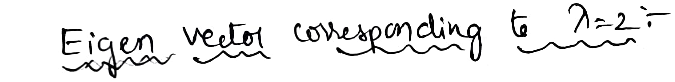 Eigen vector corresponding to λ=2:-